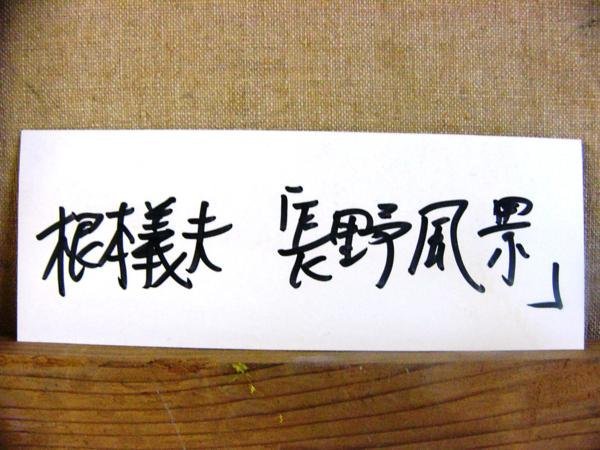 根本義夫 「長野風景」